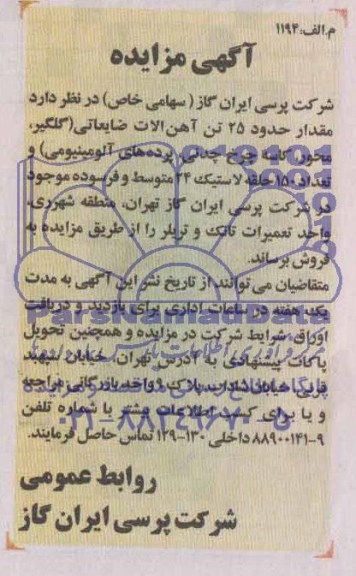 م.الف:۱۱۹۴
آگهی مزایده
شرکت پرسی ایران گاز (سهامی خاص) در نظر دارد
مقدار حدود ۲۵ تن آهن الات ضایعاتی(گلگیر،
محور، کاسه چرخ چدنی، پرده‌های آلومینیومی) و
تعداد ۱۵۰ حلقه لاستیک ۲۴ متوسط و فرسوده موجود
در شرکت پرسی ایران گاز تهران، منطقه شهرری،
واحد تعمیرات تانک و تریلر را از طریق مزایده به
فروش برساند.
متقاضیان می توانند از تاریخ نشر این آگهی به مدت
یک هفته در ساعات اداری برای بازدید و دریافت
اوراق شرایط شرکت در مزایده و همچنین تحویل
پاکات پیشنهادی به آدرس تهران، خیابان سپهبد
قرنی، خیابان شاداب، پلاک ۹ واحد بازرگانی مراجعه
و یا برای کسب اطلاعات بیشتر با شماره تلفن
۹-۸۸۹۰۰۱۴۱ داخلی ۱۳۰-۱۲۹ تماس حاصل فرمایند.
روابط عمومی
شرکت پرسی ایران گاز